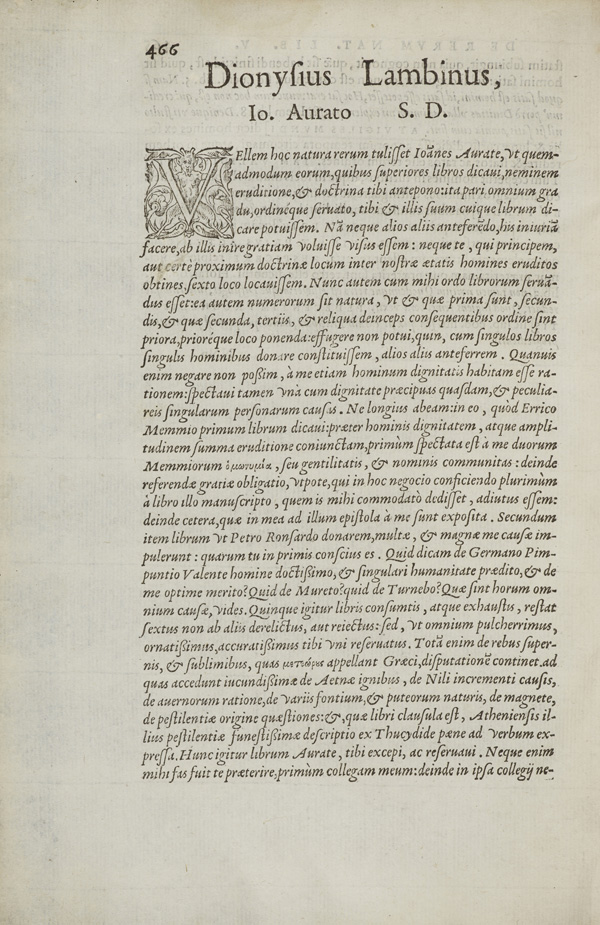 466
Dionysius Lambinus,
Io. Aurato S. D.
VEllem hoc natura rerum tulisset Ioānes Aurate, vt quem-
admodum eorum, quibus superiores libros dicaui, neminem
eruditione, & doctrina tibi antepono: ita pari omnium gra
du, ordinéque seruato, tibi & illis suum cuique librum di-
care potuissem. Nā neque alios aliis anteferēdo, his iniuriā
facere, ab illis inire gratiam voluisse visus essem: neque te, qui principem,
aut certè proximum doctrinæ locum inter nostræ ætatis homines eruditos
obtines, sexto loco locauissem. Nunc autem cum mihi ordo librorum seruā-
dus esset: ea autem numerorum sit natura, vt & quæ prima sunt, secun-
dis, & quæ secunda, tertiis, & reliqua deinceps consequentibus ordine sint
priora, prioréque loco ponenda: effugere non potui, quin, cum singulos libros
singulis hominibus donare constituissem, alios aliis anteferrem. Quanuis
enim negare non possim, à me etiam hominum dignitatis habitam esse ra-
tionem: spectaui tamen vnà cum dignitate præcipuas quasdam, & peculia-
reis singularum personarum causas. Ne longius abeam: in eo, quòd Errico
Memmio primum librum dicaui: præter hominis dignitatem, atque ampli-
tudinem summa eruditione coniunctam, primùm spectata est à me duorum
Memmiorum ὁμωνυμία, seu gentilitatis, & nominis communitas: deinde
referendæ gratiæ obligatio, vtpote, qui in hoc negocio conficiendo plurimùm
à libro illo manuscripto, quem is mihi commodatò dedisset, adiutus essem:
deinde cetera, quæ in mea ad illum epistola à me sunt exposita. Secundum
item librum vt Petro Ronsardo donarem, multæ, & magnæ me causæ im-
pulerunt: quarum tu in primis conscius es. Quid dicam de Germano Pim-
puntio Valente homine doctissimo, & singulari humanitate prædito, & de
me optime merito? Quid de Mureto? quid de Turnebo? Quæ sint horum om-
nium causæ, vides. Quinque igitur libris consumtis, atque exhaustis, restat
sextus non ab aliis derelictus, aut reiectus: sed, vt omnium pulcherrimus,
ornatissimus, accuratissimus tibi vni reseruatus. Totā enim de rebus super-
nis, & sublimibus, quas μετέωρα appellant Græci, disputationē continet. ad
quas accedunt iucundissimæ de Aetnæ ignibus, de Nili incrementi causis,
de auernorum ratione, de variis fontium, & puteorum naturis, de magnete,
de pestilentiæ origine quæstiones: &, quæ libri clausula est, Atheniensis il-
lius pestilentiæ funestissimæ descriptio ex Thucydide pæne ad verbum ex-
pressa. Hunc igitur librum Aurate, tibi excepi, ac reseruaui. Neque enim
mihi fas fuit te præterire, primùm collegam meum: deinde in ipsa collegij ne-